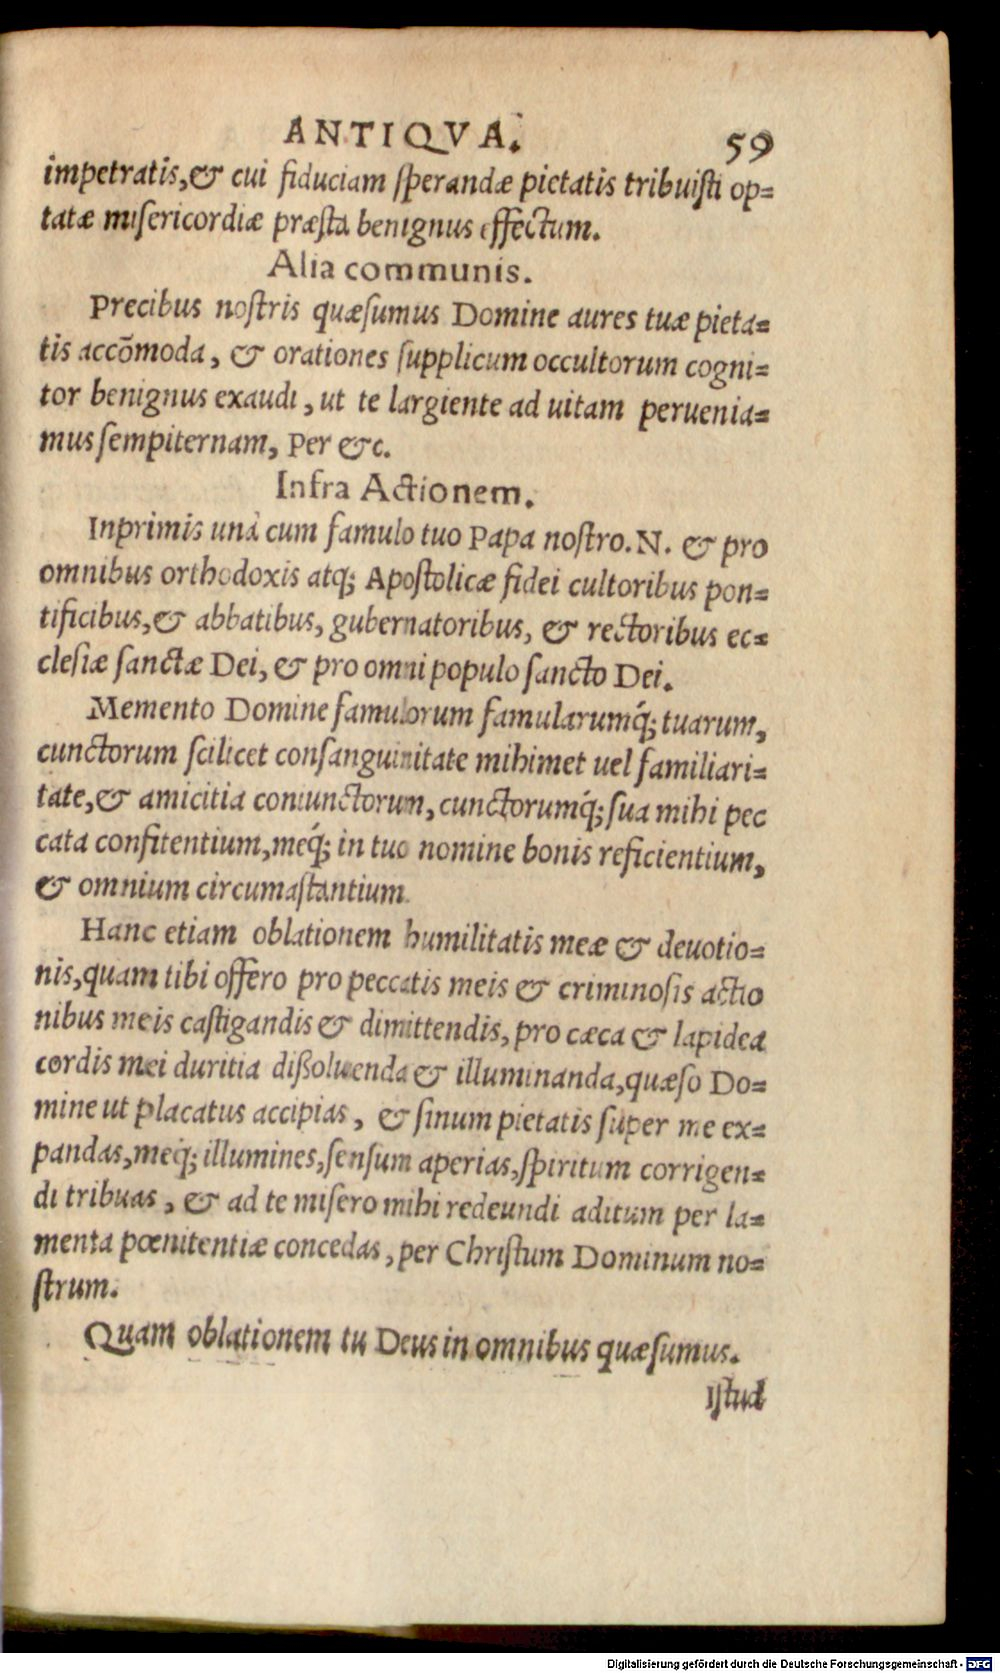 ANTIQVA. 59
impetratis, & cui fiduciam sperandæ pietatis tribuisti op=
tatæ misericordiæ præsta benignus effectum.
Alia communis.
Precibus nostris quæsumus Domine aures tuæ pieta=
tis accōmoda, & orationes supplicum occultorum cogni=
tor benignus exaudi, ut te largiente ad uitam peruenia=
mus sempiternam, Per &c.
Infra Actionem.
Inprimis unà cum famulo tuo Papa nostro. N. & pro
omnibus orthodoxis atq; Apostolicæ fidei cultoribus pon=
tificibus, & abbatibus, gubernatoribus, & rectoribus ec=
clesiæ sanctæ Dei, & pro omni populo sancto Dei.
Memento Domine famulorum famularumq́; tuarum,
cunctorum scilicet consanguinitate mihimet uel familiari=
tate, & amicitia coniunctorum, cunctorumq́; sua mihi pec
cata confitentium, meq́; in tuo nomine bonis reficientium,
& omnium circumastantium.
Hanc etiam oblationem humilitatis meæ & deuotio=
nis, quam tibi offero pro peccatis meis & criminosis actio
nibus meis castigandis & dimittendis, pro cæca & lapidea
cordis mei duritia dißoluenda & illuminanda, quæso Do=
mine ut placatus accipias, & sinum pietatis super me ex=
pandas, meq́; illumines, sensum aperias, spiritum corrigen=
di tribuas, & ad te misero mihi redeundi aditum per la=
menta pœnitentiæ concedas, per Christum Dominum no=
strum.
Quam oblationem tu Deus in omnibus quæsumus.
Istud
Digitalisierung gefördert durch die Deutsche Forschungsgemeinschaft - DFG